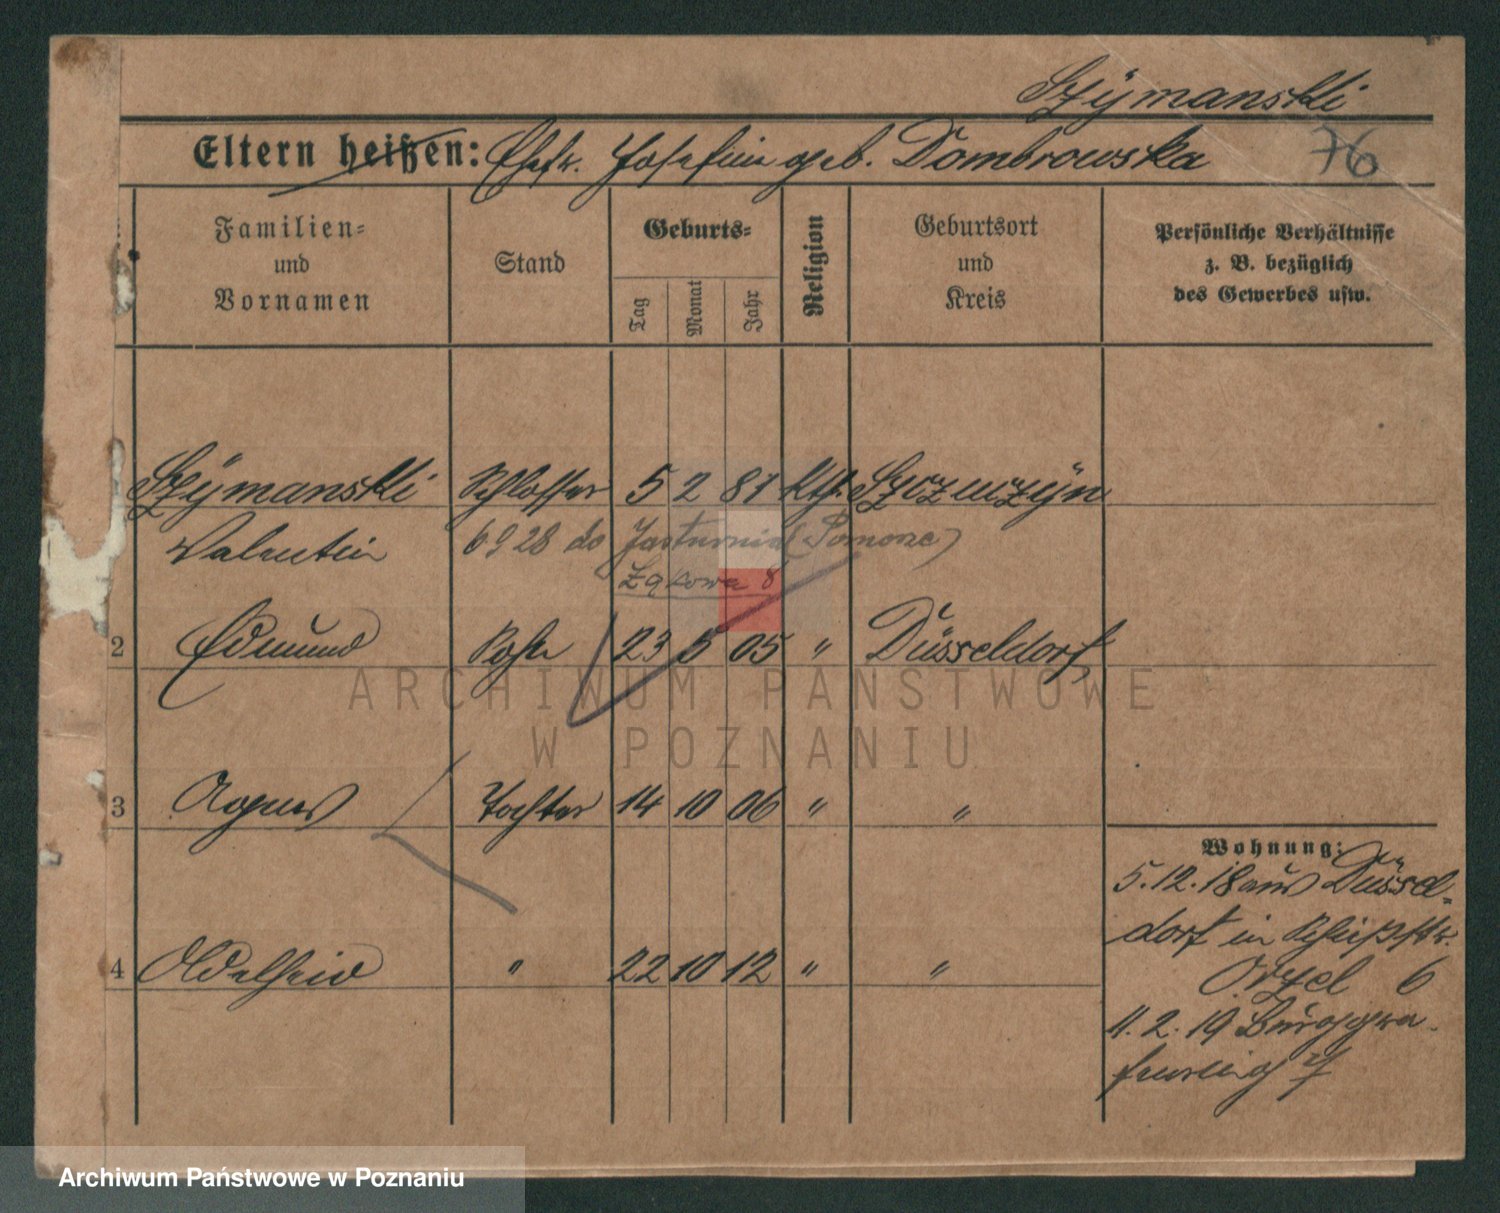 Szÿmanski
Eltern heißen: Ehefr. Josefine geb. Dombrowska
76
Familien- und Vornamen
Stand
Geburts-
Tag
Monat
Jahr
Religion
Geburtsort und Kreis
Persönliche Verhältnisse
z. B. bezüglich
des Gewerbes usw.
Szÿmanski Schlosser 5 2 81 kth.
Valentin 6 9 28 do Jastarnia (Pomorze)
Łąkowa 8
2 Edmund Sohn 23 5 05 " Düsseldorf
3 Agnes Tochter 14 10 06 " "
4 Adelheid " 22 10 12 " "
Wohnung:
5.12.18 aus Düssel-
dorf in
6
11.2.19
ARCHIWUM PAŃSTWOWE
W POZNANIU
Archiwum Państwowe w Poznaniu